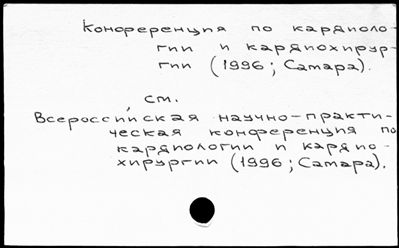 Конференция по кардиоло-
гии и кардиохирур-
гии (1996; Самара).
см.
Всероссийская научно-практи-
ческая конференция по
кардиологии и кардио-
хирургии (1996; Самара).